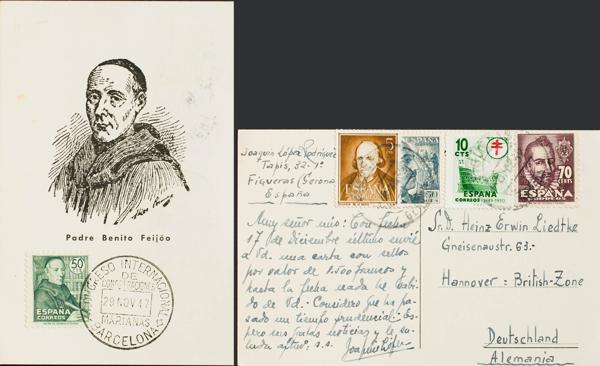 Padre Benito Feijóo
50
CTS
ESPAÑA
CORREOS
CONGRESO INTERNACIONAL
DE
CONGREGACIONES
MARIANAS
29 NOV 47
BARCELONA
Joaquín López Rodríguez
Tapis, 32-1º
Figueras (Gerona
España
5
ESPAÑA
ESPAÑA
50
10
CTS
ESPAÑA
CORREOS
70
CENTS
ESPAÑA
CORREOS
Muy señor mio: Con fecha
17 de Diciembre último envié
a Vd. una carta con sellos
por valor de 1.500 francos y
hasta la fecha nada he sabido
de Vd. Considero que ha pa-
sado un tiempo prudencial. Es-
pero sus gratas noticias y le sa-
luda aftvo. s.s.
Joaquín López
Sr. D. Heinz Erwin Liedtke
Gneisenaustr. 63.-
Hannover: British-Zone
Deutschland
Alemania